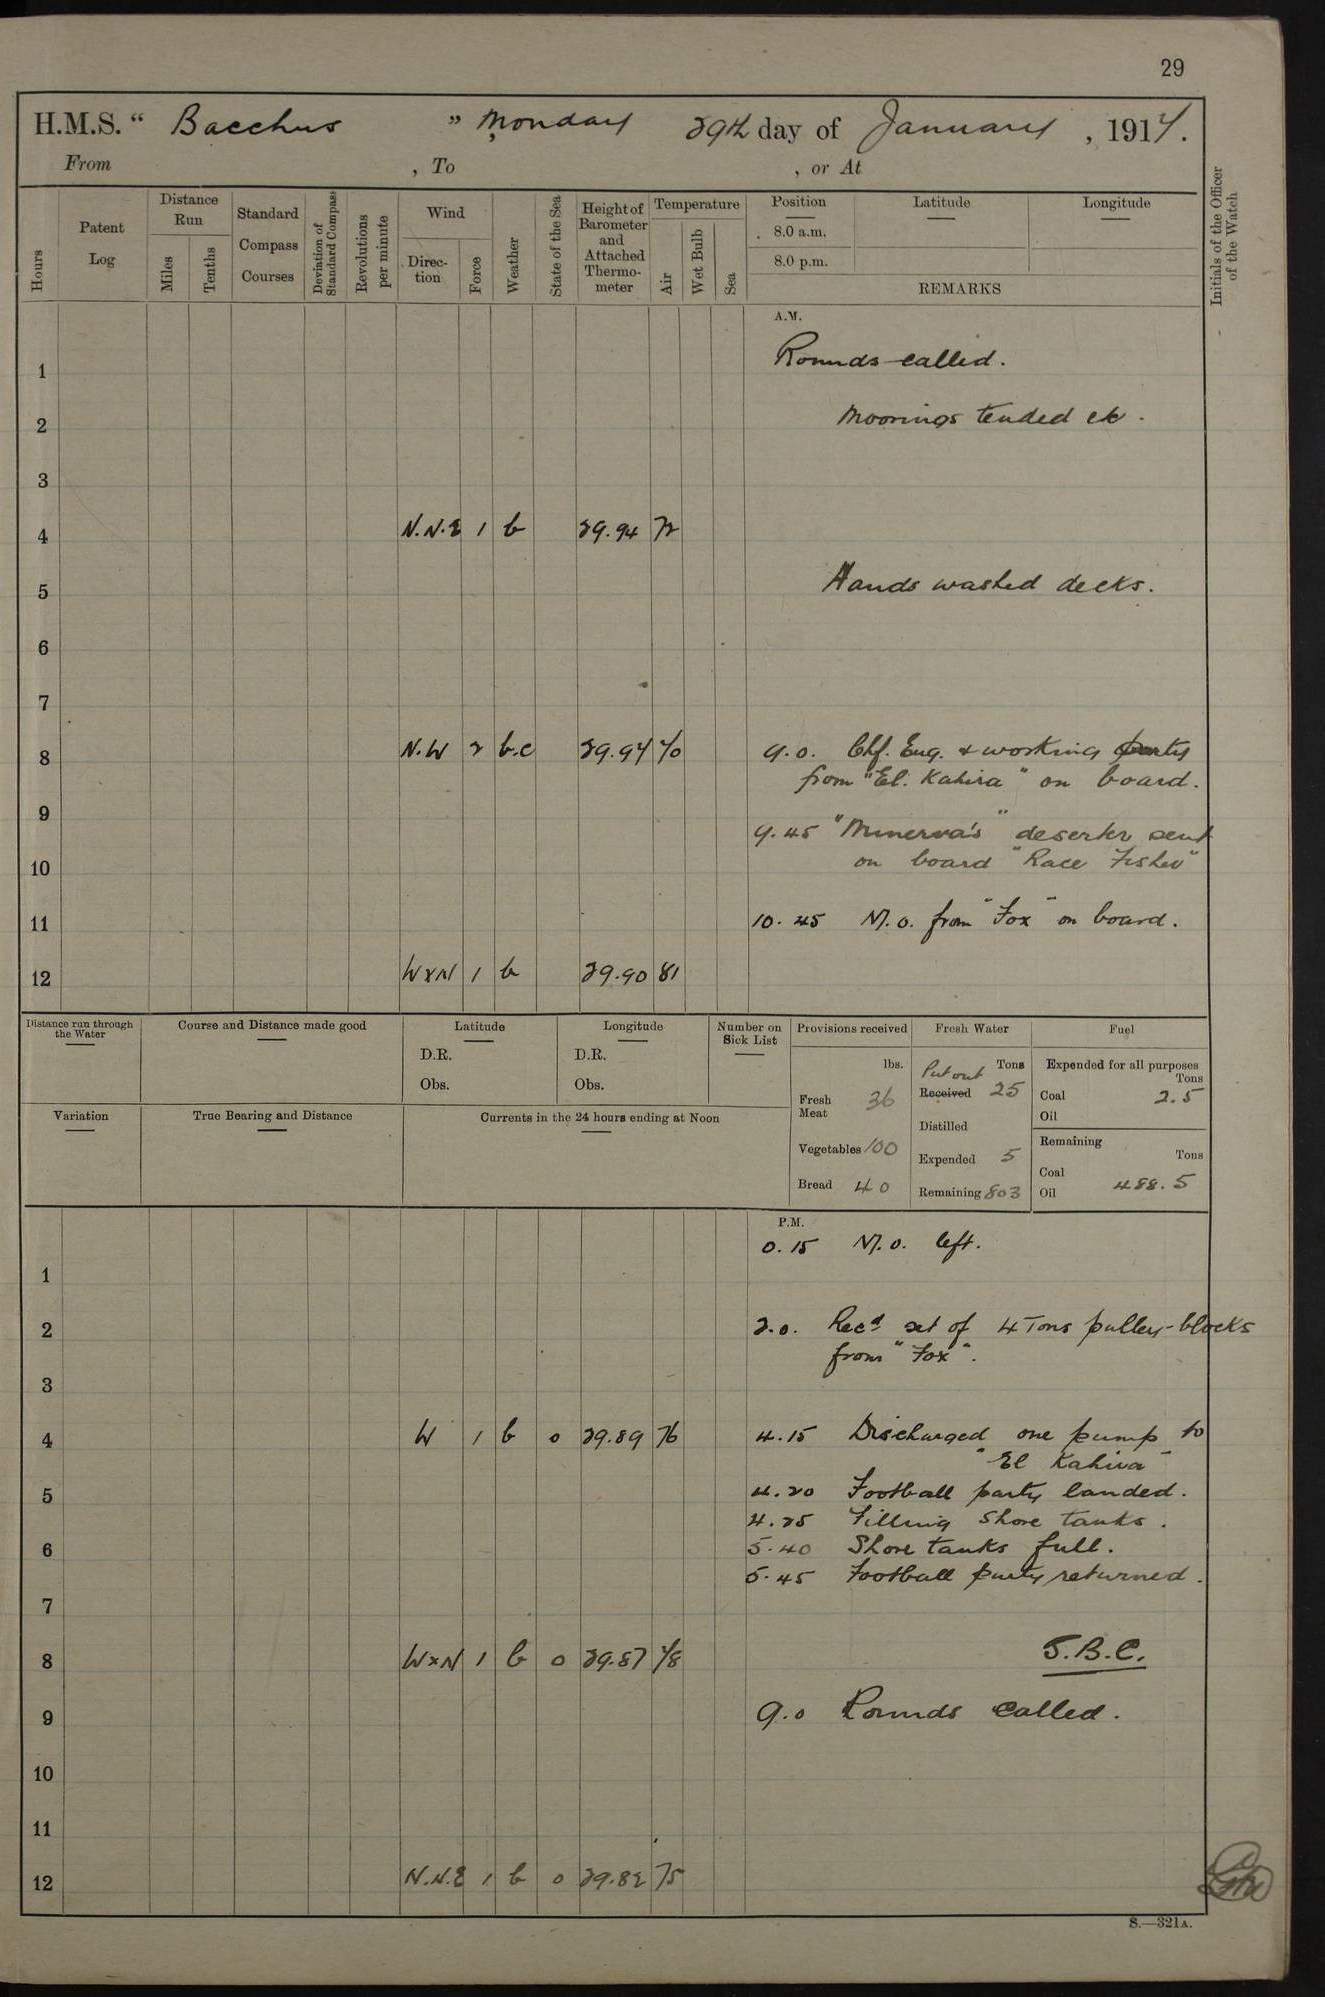 29
H.M.S. “ Bacchus ” Monday 29th day of January , 1917.
From , To , or At
Hours
Patent Log
Distance Run
Miles
Tenths
Standard Compass Courses
Deviation of Standard Compass
Revolutions per minute
Wind
Direc-tion
Force
Weather
State of the Sea
Height of Barometer and Attached Thermo-meter
Temperature
Air
Wet Bulb
Sea
Position Latitude Longitude
8.0 a.m.
8.0 p.m.
REMARKS
Initials of the Officer of the Watch
A.M.
Rounds called.
1
Moorings tended etc.
2
3
4 N.N.E 1 b 29.94 72
Hands washed decks.
5
6
7
8 N.W 2 b.c 29.94 70
9.0. Chf. Eng. & working party
from "El. Kahira" on board.
9
9.45 "Minerva's" deserter sent
on board "Race Fisher"
10
11
10.45 M.O. from "Fox" on board.
12 WxN 1 b 29.90 81
Distance run through the Water
Course and Distance made good
Latitude
D.R.
Obs.
Longitude
D.R.
Obs.
Number on Sick List
Variation
True Bearing and Distance
Currents in the 24 hours ending at Noon
Provisions received
lbs.
Fresh Meat 36
Vegetables 100
Bread 40
Fresh Water
Put out Tons
Received 25
Distilled
Expended 5
Remaining 803
Fuel
Expended for all purposes
Tons
Coal 2.5
Oil
Remaining
Tons
Coal
Oil 488.5
P.M.
0.15 M.O. left.
1
2
2.0. Recd set of 4 Tons pulley-blocks
from "Fox".
3
4 W 1 b 0 29.89 76
4.15 Discharged one pump to
"El Kahira"
5
4.20 Football party landed.
4.25 Filling shore tanks.
6
5.40 Shore tanks full.
5.45 Football party returned.
7
8 WxN 1 b 0 29.87 78
S.B.C.
9
9.0 Rounds called.
10
11
12 N.N.E 1 b 0 29.82 75
S.—321A.